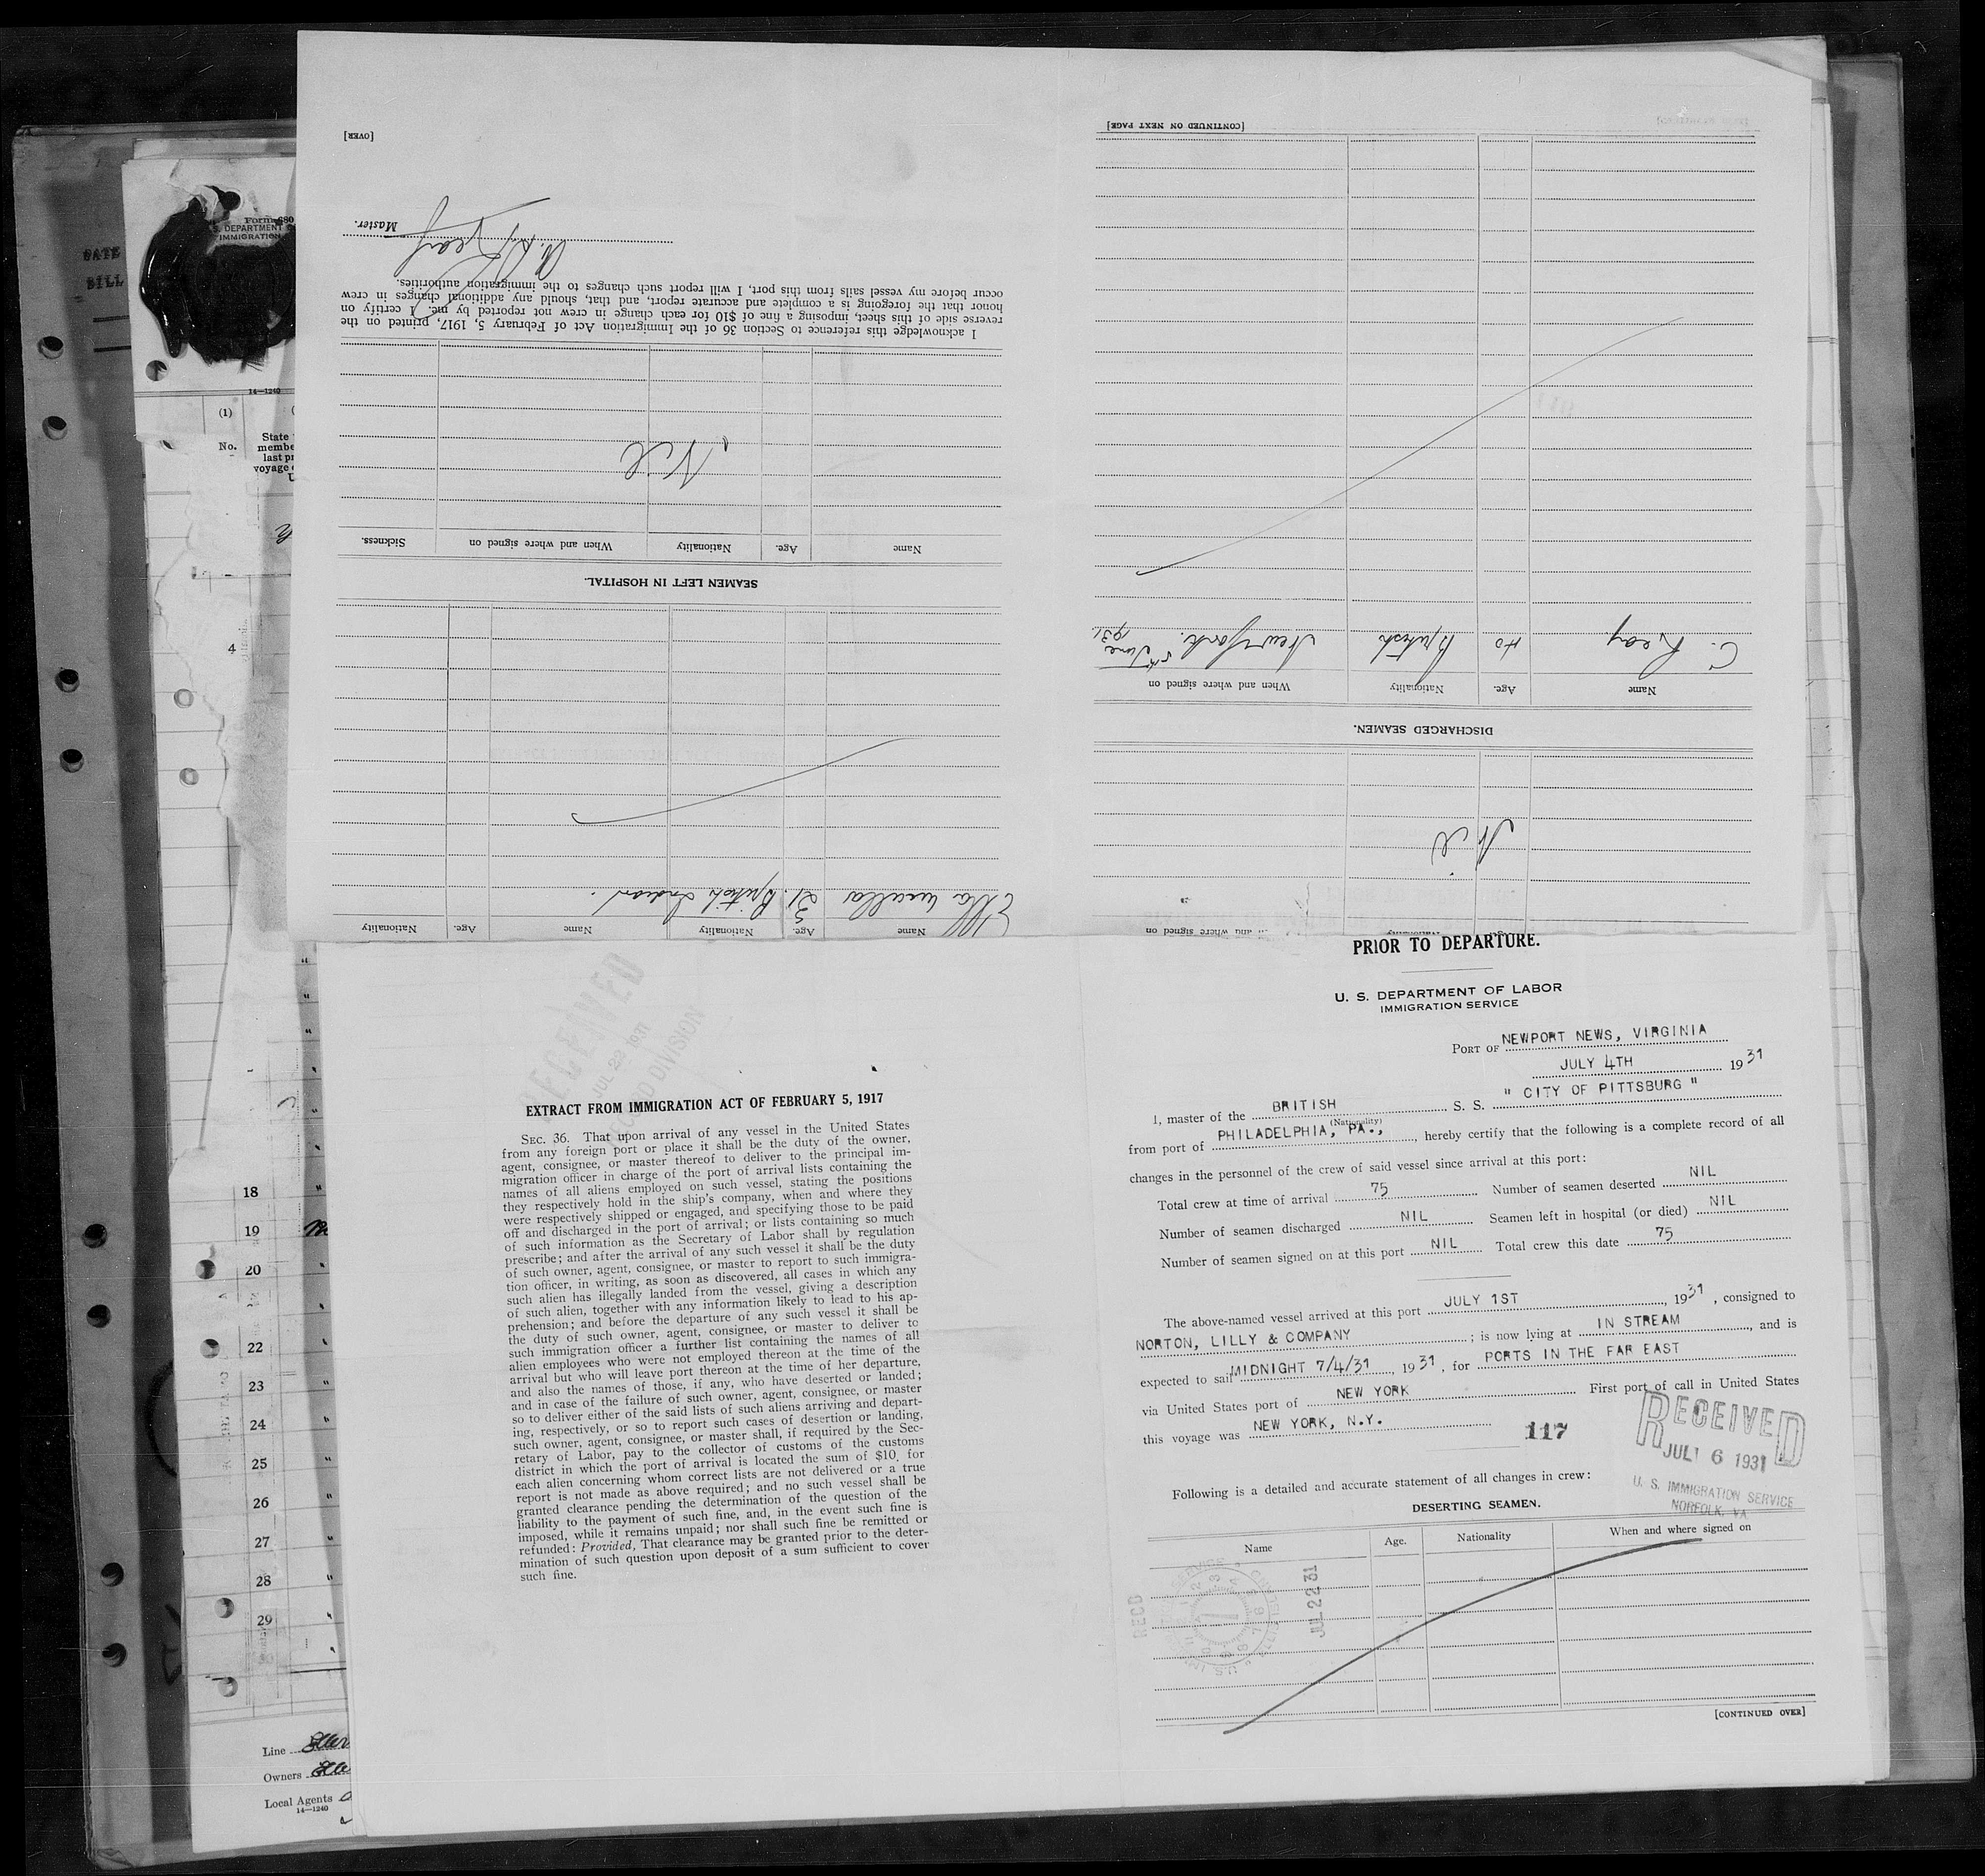 [OVER]
Master.
I acknowledge this reference to Section 36 of the Immigration Act of February 5, 1917, printed on the
reverse side of this sheet, imposing a fine of $10 for each change in crew not reported by me. I certify on
honor that the foregoing is a complete and accurate report, and that, should any additional changes in crew
occur before my vessel sails from this port, I will report such changes to the immigration authorities.
Nil
Name Age. Nationality When and where signed on Sickness.
SEAMEN LEFT IN HOSPITAL.
British Indian.
31
Name Age. Nationality Name Age. Nationality
[CONTINUED ON NEXT PAGE]
C. Reay. 40 British New York. 5th June 1931
Name Age. Nationality When and where signed on
DISCHARGED SEAMEN.
Nil.
and where signed on
Form 680
DEPARTMENT
IMMIGRATION
14—1240
(1)
No.
State
last
voyage
4
18
19
20
22
23
24
25
26
27
28
29
Line
Owners
Local Agents
14—1240
RECEIVED
JUL 22 1931
DIVISION
EXTRACT FROM IMMIGRATION ACT OF FEBRUARY 5, 1917
SEC. 36. That upon arrival of any vessel in the United States
from any foreign port or place it shall be the duty of the owner,
agent, consignee, or master thereof to deliver to the principal im-
migration officer in charge of the port of arrival lists containing the
names of all aliens employed on such vessel, stating the positions
they respectively hold in the ship's company, when and where they
were respectively shipped or engaged, and specifying those to be paid
off and discharged in the port of arrival; or lists containing so much
of such information as the Secretary of Labor shall by regulation
prescribe; and after the arrival of any such vessel it shall be the duty
of such owner, agent, consignee, or master to report to such immigra-
tion officer, in writing, as soon as discovered, all cases in which any
such alien has illegally landed from the vessel, giving a description
of such alien, together with any information likely to lead to his ap-
prehension; and before the departure of any such vessel it shall be
the duty of such owner, agent, consignee, or master to deliver to
such immigration officer a further list containing the names of all
alien employees who were not employed thereon at the time of the
arrival but who will leave port thereon at the time of her departure,
and also the names of those, if any, who have deserted or landed;
and in case of the failure of such owner, agent, consignee, or master
so to deliver either of the said lists of such aliens arriving and depart-
ing, respectively, or so to report such cases of desertion or landing,
such owner, agent, consignee, or master shall, if required by the Sec-
retary of Labor, pay to the collector of customs of the customs
district in which the port of arrival is located the sum of $10 for
each alien concerning whom correct lists are not delivered or a true
report is not made as above required; and no such vessel shall be
granted clearance pending the determination of the question of the
liability to the payment of such fine, and, in the event such fine is
imposed, while it remains unpaid; nor shall such fine be remitted or
refunded: Provided, That clearance may be granted prior to the deter-
mination of such question upon deposit of a sum sufficient to cover
such fine.
PRIOR TO DEPARTURE.
U. S. DEPARTMENT OF LABOR
IMMIGRATION SERVICE
PORT OF NEWPORT NEWS, VIRGINIA
JULY 4TH 1931
I, master of the BRITISH S. S. " CITY OF PITTSBURG "
(Nationality)
from port of PHILADELPHIA, PA., hereby certify that the following is a complete record of all
changes in the personnel of the crew of said vessel since arrival at this port:
Total crew at time of arrival 75 Number of seamen deserted NIL
Number of seamen discharged NIL Seamen left in hospital (or died) NIL
Number of seamen signed on at this port NIL Total crew this date 75
The above-named vessel arrived at this port JULY 1ST, 1931, consigned to
NORTON, LILLY & COMPANY; is now lying at IN STREAM, and is
expected to sail MIDNIGHT 7/4/31, 1931, for PORTS IN THE FAR EAST
via United States port of NEW YORK First port of call in United States
this voyage was NEW YORK, N.Y.
117
RECEIVED
JUL 6 1931
U. S. IMMIGRATION SERVICE
NORFOLK, VA
Following is a detailed and accurate statement of all changes in crew:
DESERTING SEAMEN.
Name Age. Nationality When and where signed on
RECD
JUL 22 31
[CONTINUED OVER]